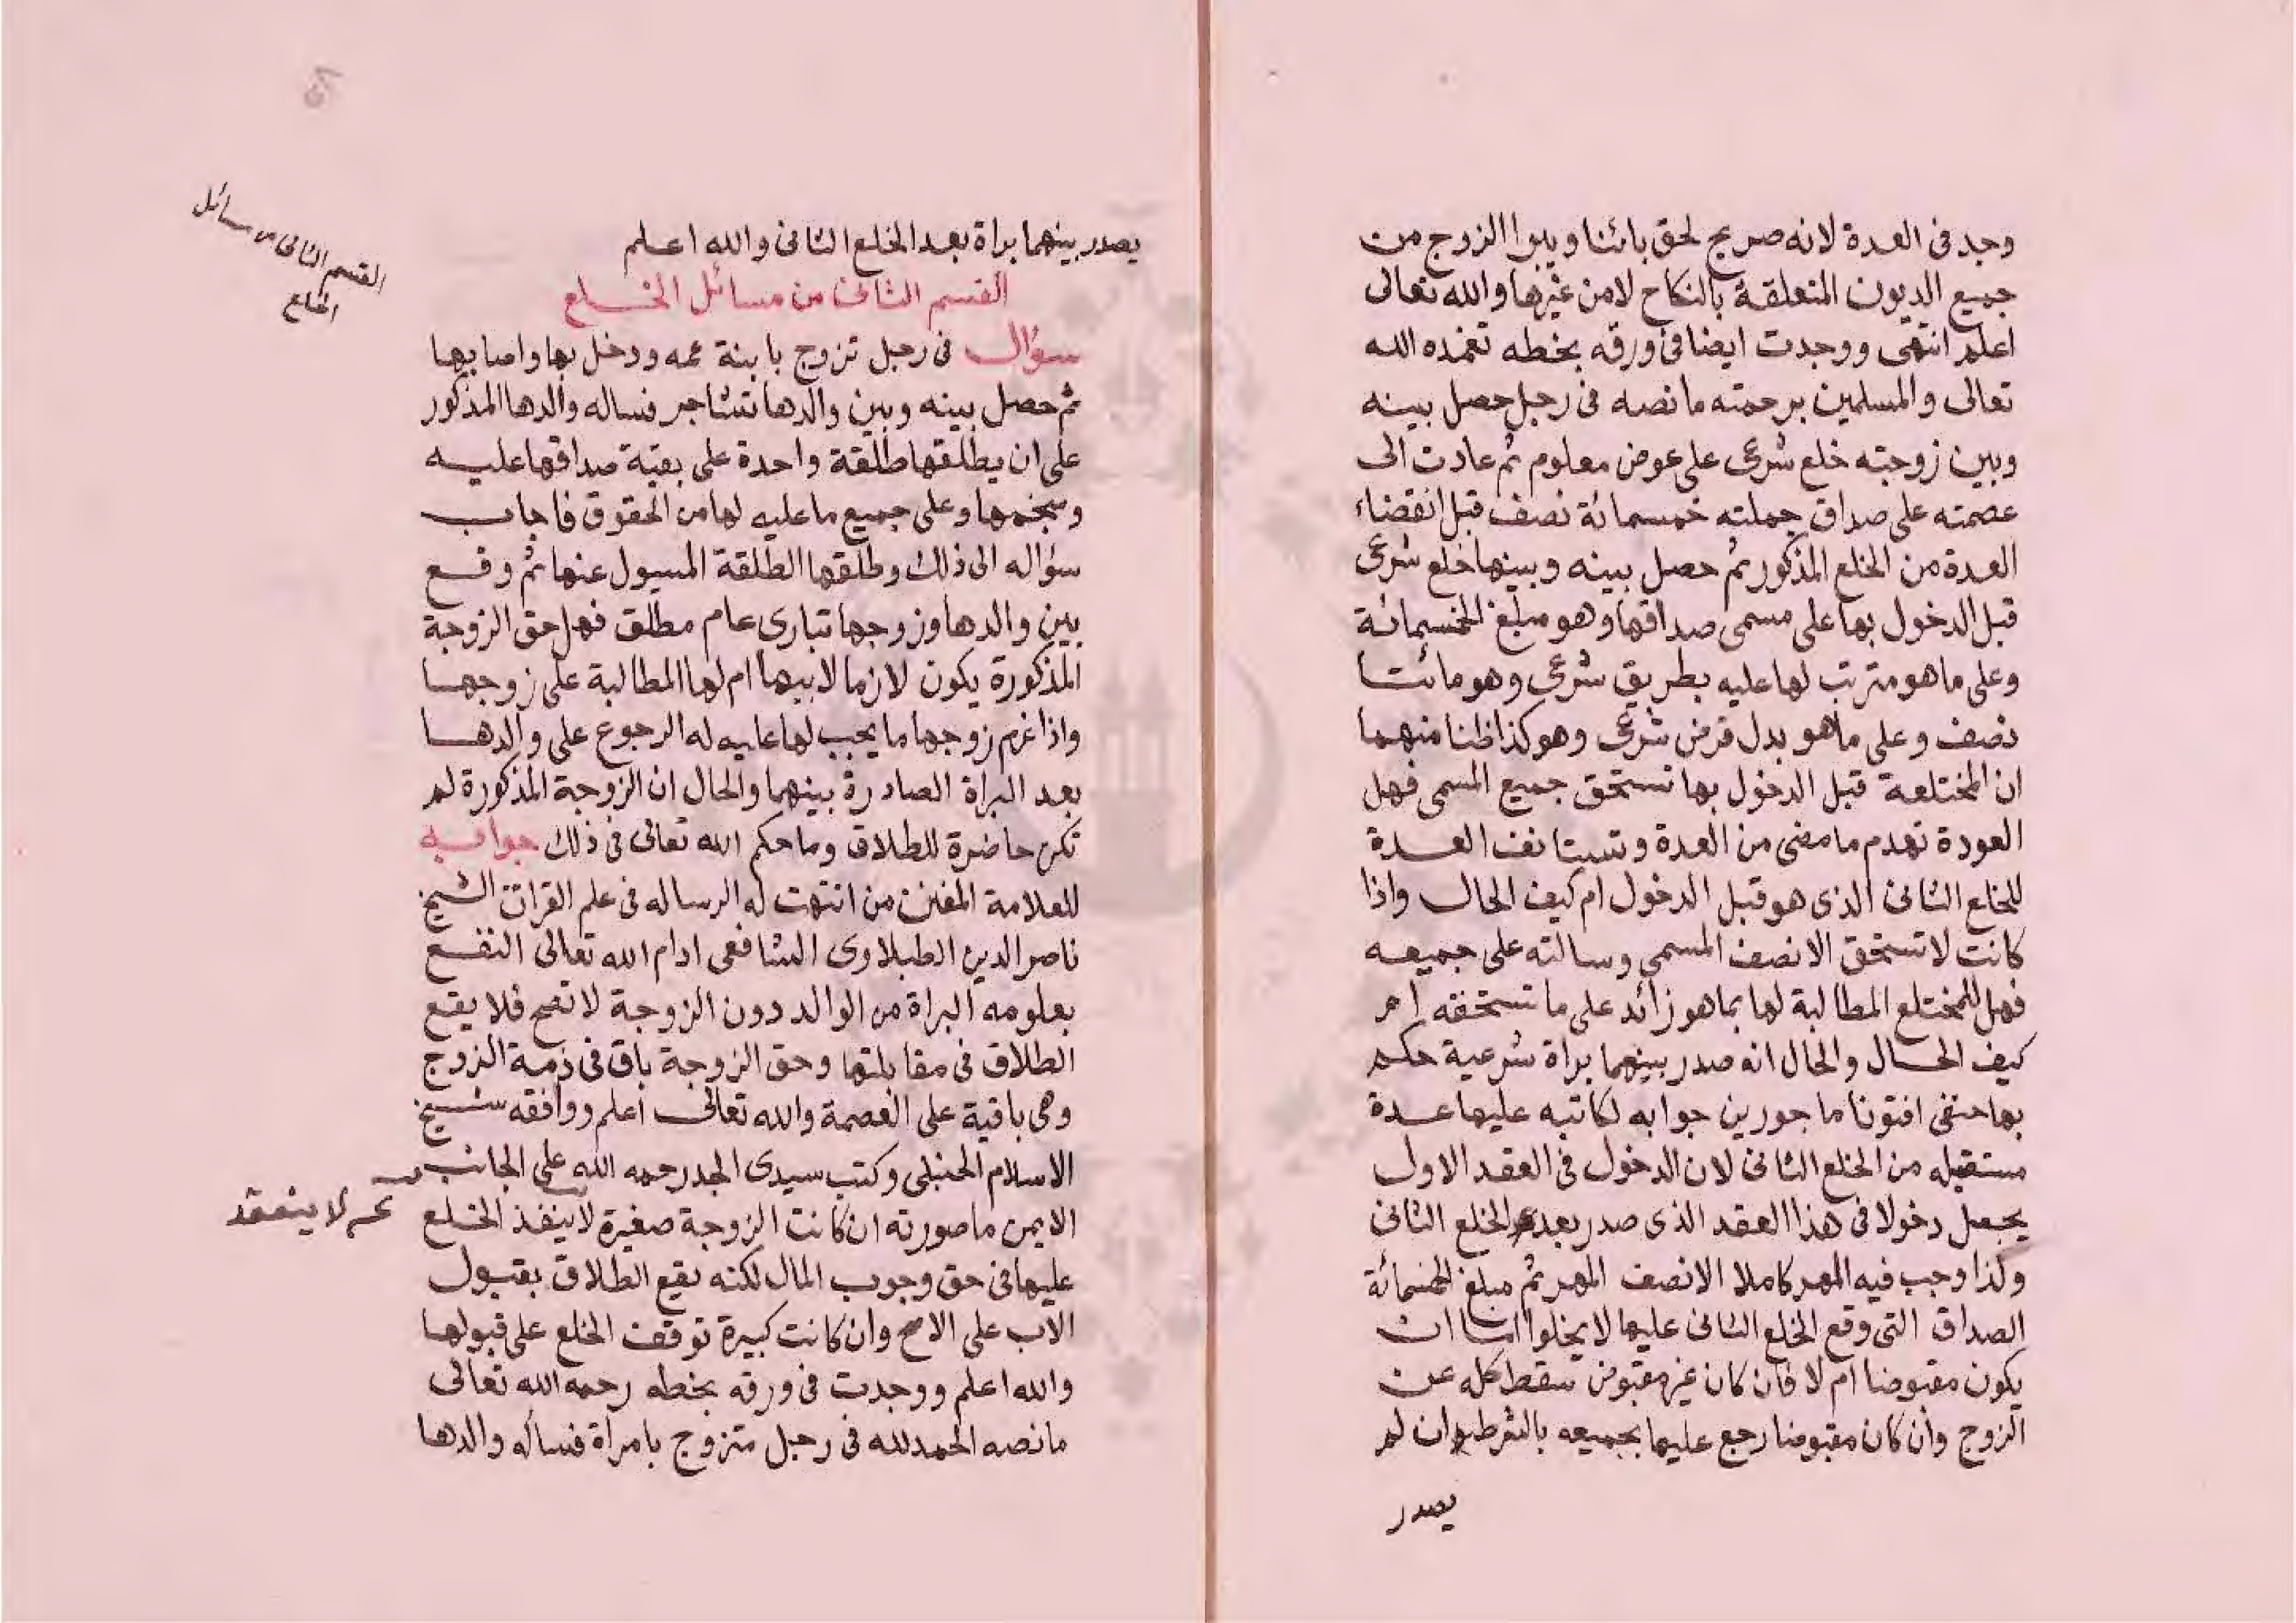 وجد فى العدة لانه صريح لحق بائنا ويبرا الزوج من
جميع الديون المتعلقة بالنكاح لا من غيرها والله تعالى
اعلم انتهى ووجدت ايضا فى ورقه بخطه تغمده الله
تعالى والمسلمين برحمته ما نصه فى رجل حصل بينه
وبين زوجته خلع شرعى على عوض معلوم ثم عادت الى
عصمته على صداق جملته خمسمائة نصف قبل انقضاء
العدة من الخلع المذكور ثم حصل بينه وبينها خلع شرعى
قبل الدخول بها على مسمى صداقها وهو مبلغ الخمسمائة
وعلى ما هو مترتب لها عليه بطريق شرعى وهو مائتا
نصف وعلى ما هو بدل قرض شرعى وهو كذا ظنا منهما
ان المختلعة قبل الدخول بها تستحق جميع المسمى فهل
العودة تهدم ما مضى من العدة وتستانف العدة
للخلع الثانى الذى هو قبل الدخول ام كيف الحال واذا
كانت لا تستحق الا نصف المسمى وسالته على جميعه
فهل للمختلع المطالبة لها بما هو زائد على ما تستحقه ام
كيف الحال والحال انه صدر بينهما براة شرعية حكم
بها حنفى افتونا ماجورين جوابه لكاتبه عليها عدة
مستقبله من الخلع الثانى لان الدخول فى العقد الاول
يجعل دخولا فى هذا العقد الذى صدر بعده الخلع الثانى
ولذا وجب فيه المهر كاملا الا نصف المهر ثم مبلغ الخمسمائة
الصداق التى وقع الخلع الثانى عليها لا يخلوا اما ان
يكون مقبوضا ام لا فان كان غير مقبوض سقط كله عن
الزوج وان كان مقبوضا رجع عليها بجميعه بالشرط ان لم
يصدر
يصدر بينهما براة بعد الخلع الثانى والله اعلم
القسم الثانى من مسائل الخلع
القسم الثانى من مسائل
الخلع
سؤال فى رجل تزوج بابنة عمه ودخل بها واصابها
ثم حصل بينه وبين والدها تشاجر فساله والدها المذكور
على ان يطلقها طلقة واحدة على بقية صداقها عليه
ومنجمها وعلى جميع ما عليه لها من الحقوق فاجاب
سؤاله الى ذلك وطلقها الطلقة المسيول عنها ثم وقع
بين والدها وزوجها تبارى عام مطلق فهل حق الزوجة
المذكورة يكون لازما لابيها ام لها المطالبة على زوجها
واذا غرم زوجها ما يجب لها عليه له الرجوع على والدها
بعد البراة الصادرة بينهما والحال ان الزوجة المذكورة لم
تكن حاضرة للطلاق وما حكم الله تعالى فى ذلك جوابه
للعلامة المفنن من انتهت له الرساله فى علم القرات الشيخ
ناصر الدين الطبلاوى الشافعى ادام الله تعالى النفع
بعلومه البراة من الوالد دون الزوجة لا تصح فلا يقع
الطلاق فى مقابلتها وحق الزوجة باق فى ذمة الزوج
وهى باقية على العصمة والله تعالى اعلم ووافقه شيخ
الاسلام الحنبلى وكتب سيدى الجد رحمه الله على الجانب
الايمن ما صورته ان كانت الزوجة صغيرة لا ينفذ الخلع
لا ينعقد
عليها فى حق وجوب المال لكنه يقع الطلاق بقبول
الاب على الاصح وان كانت كبيرة توقف الخلع على قبولها
والله اعلم ووجدت فى ورقه بخطه رحمه الله تعالى
ما نصه الحمد لله فى رجل متزوج بامراة فسأله والدها